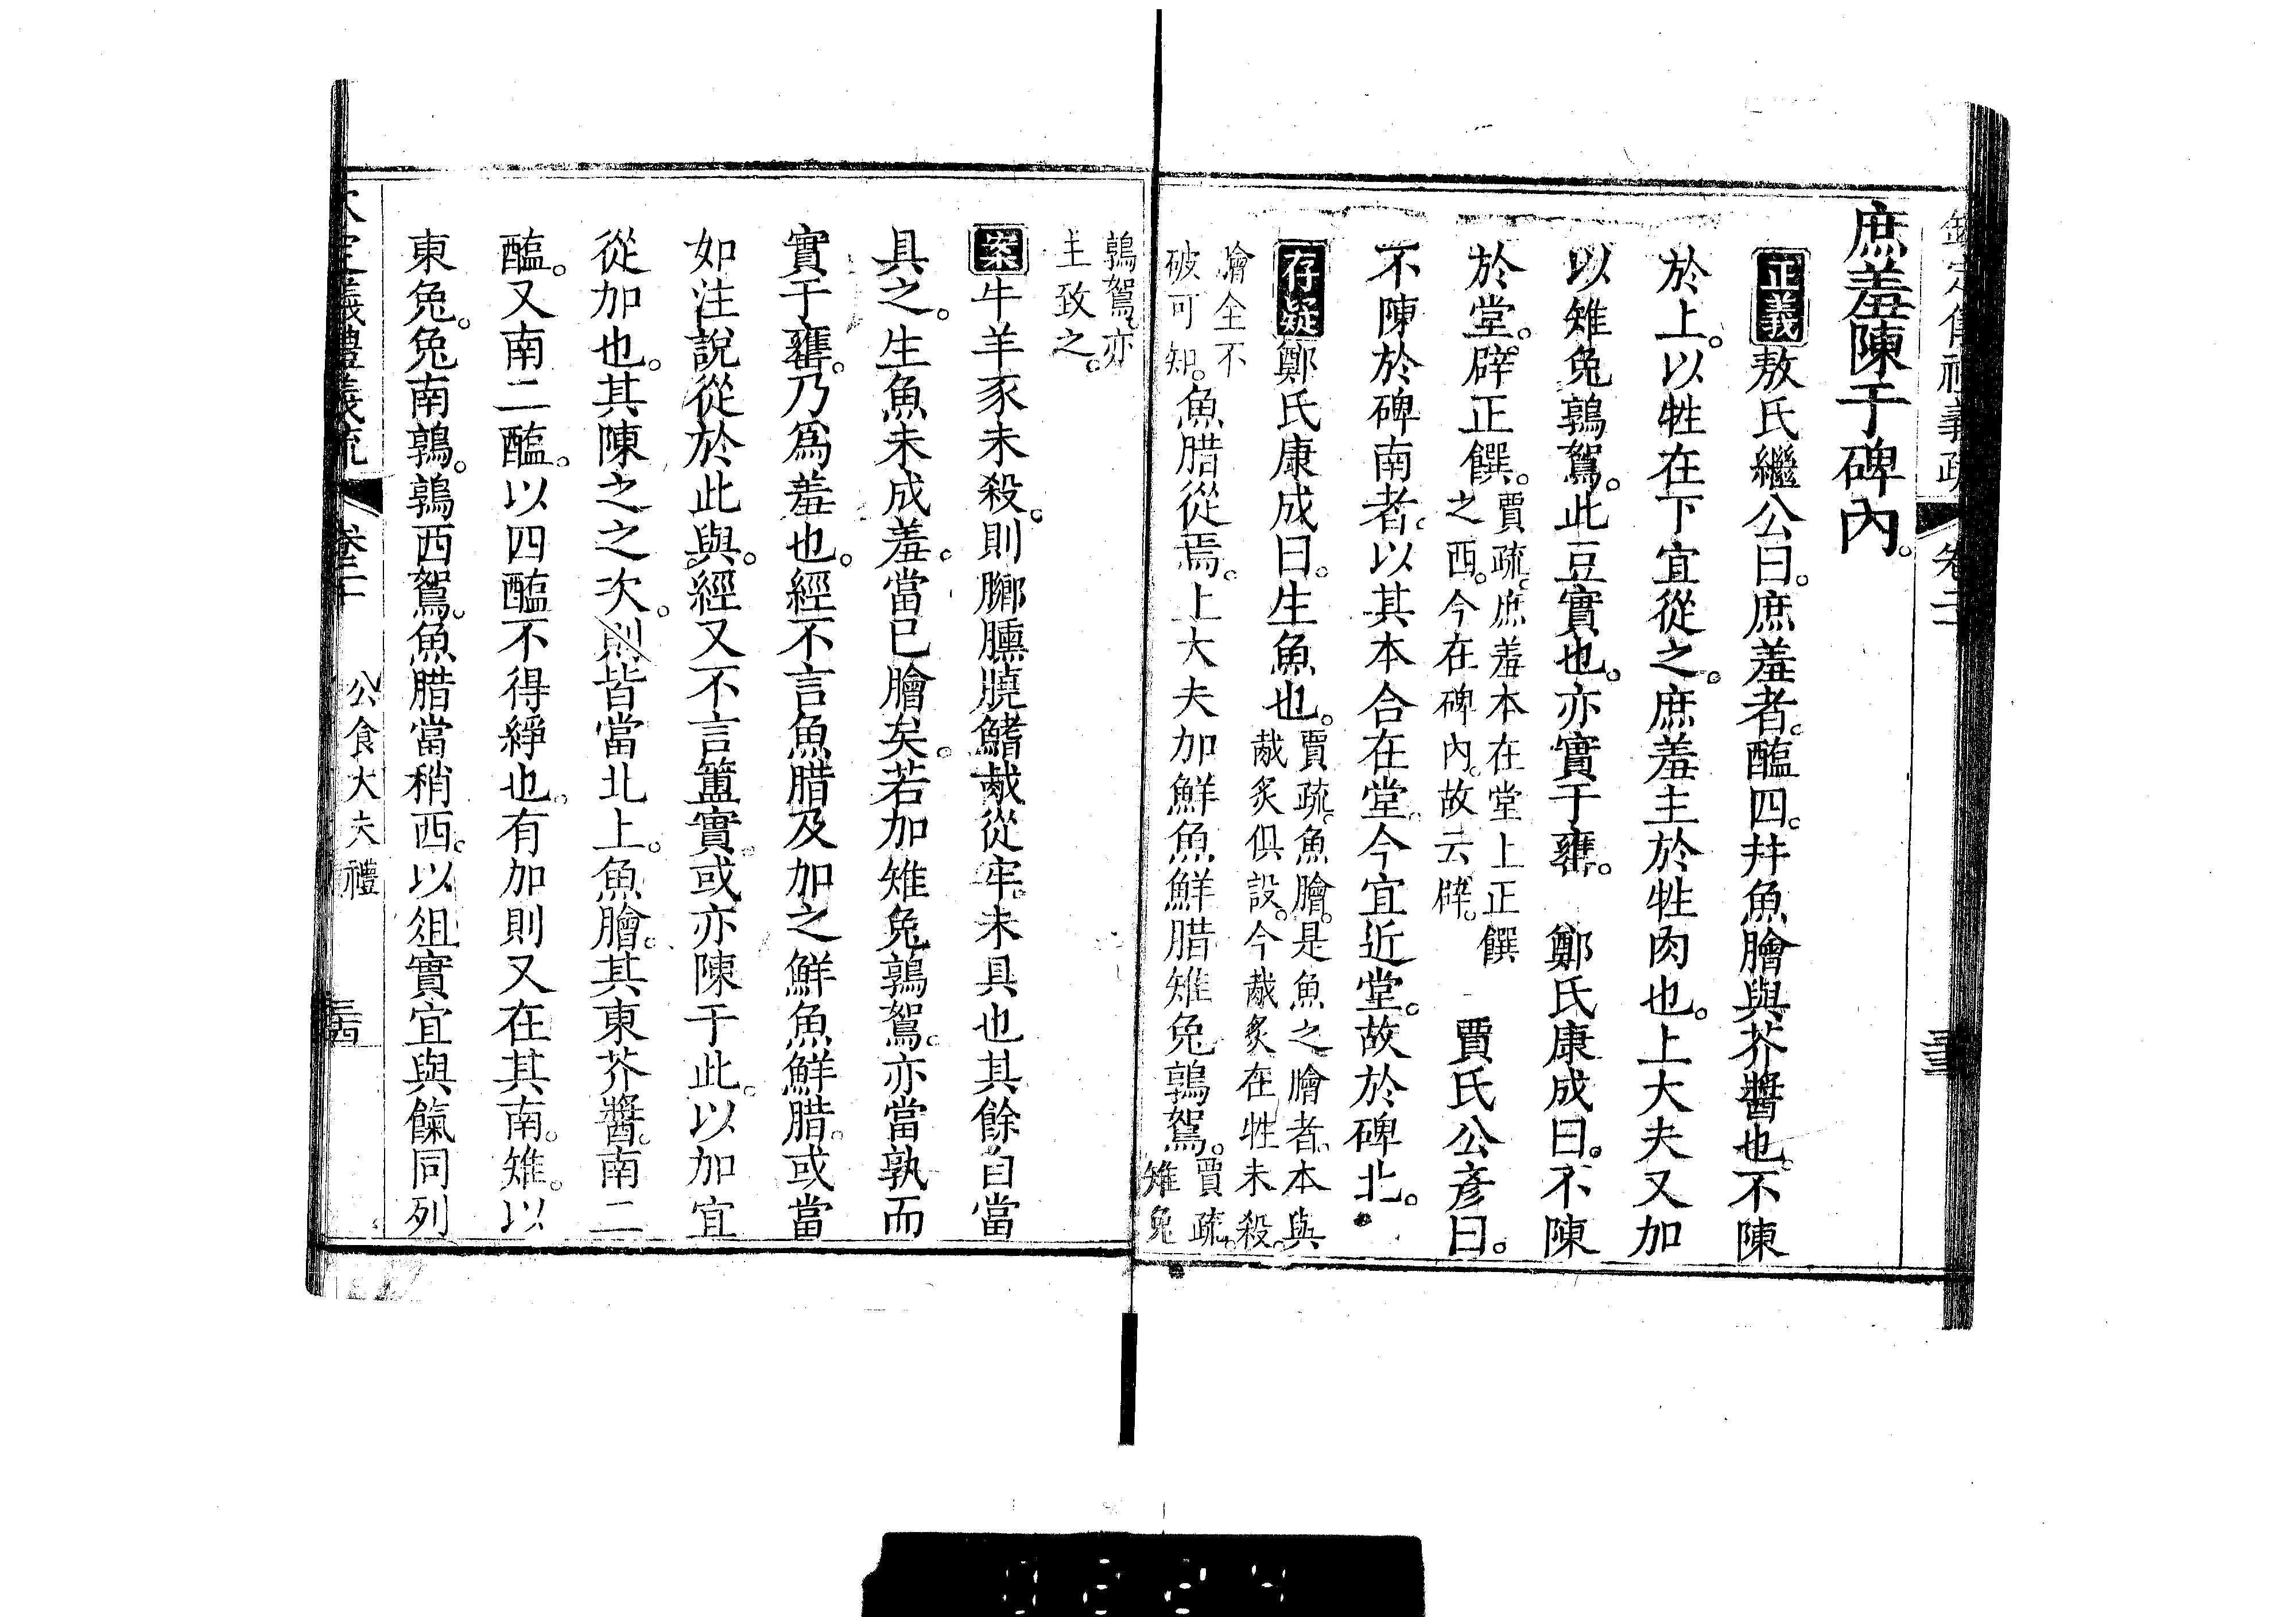 欽定儀禮義疏 卷二 三三
庶羞陳于碑內。
正義敖氏繼公曰。庶羞者。醢四。幷魚膾與芥醬也。不陳
於上。以牲在下宜從之。庶羞主於牲肉也。上大夫又加
以雉兔鶉鴽。此豆實也。亦實于甕。 鄭氏康成曰。不陳
於堂。辟正饌。賈疏。庶羞本在堂上正饌
之西。今在碑內。故云辟。 賈氏公彥曰。
不陳於碑南者。以其本合在堂。今宜近堂。故於碑北。
存疑鄭氏康成曰。生魚也。賈疏。魚膾。是魚之膾者。本與
胾炙俱設。今胾炙在牲未殺。
膾全不
破可知。魚腊從焉。上大夫加鮮魚鮮腊雉兔鶉鴽。賈疏。
雉兔
鶉鴽。亦
主致之。
案牛羊豕未殺。則膷臐膮鮨胾從牢。未具也其餘自當
具之。生魚未成羞。當已膾矣。若加雉兔鶉鴽。亦當孰而
實于甕。乃爲羞也。經不言魚腊及加之鮮魚鮮腊。或當
如注說從於此與。經又不言簠實。或亦陳于此。以加宜
從加也。其陳之之次。則皆當北上。魚膾。其東芥醬。南二
醢。又南二醢。以四醢不得綪也。有加則又在其南。雉。以
東兔。兔南鶉。鶉西鴽。魚腊當稍西。以俎實宜與餼同列
欽定義禮義疏 卷二十 公食大夫禮 三四